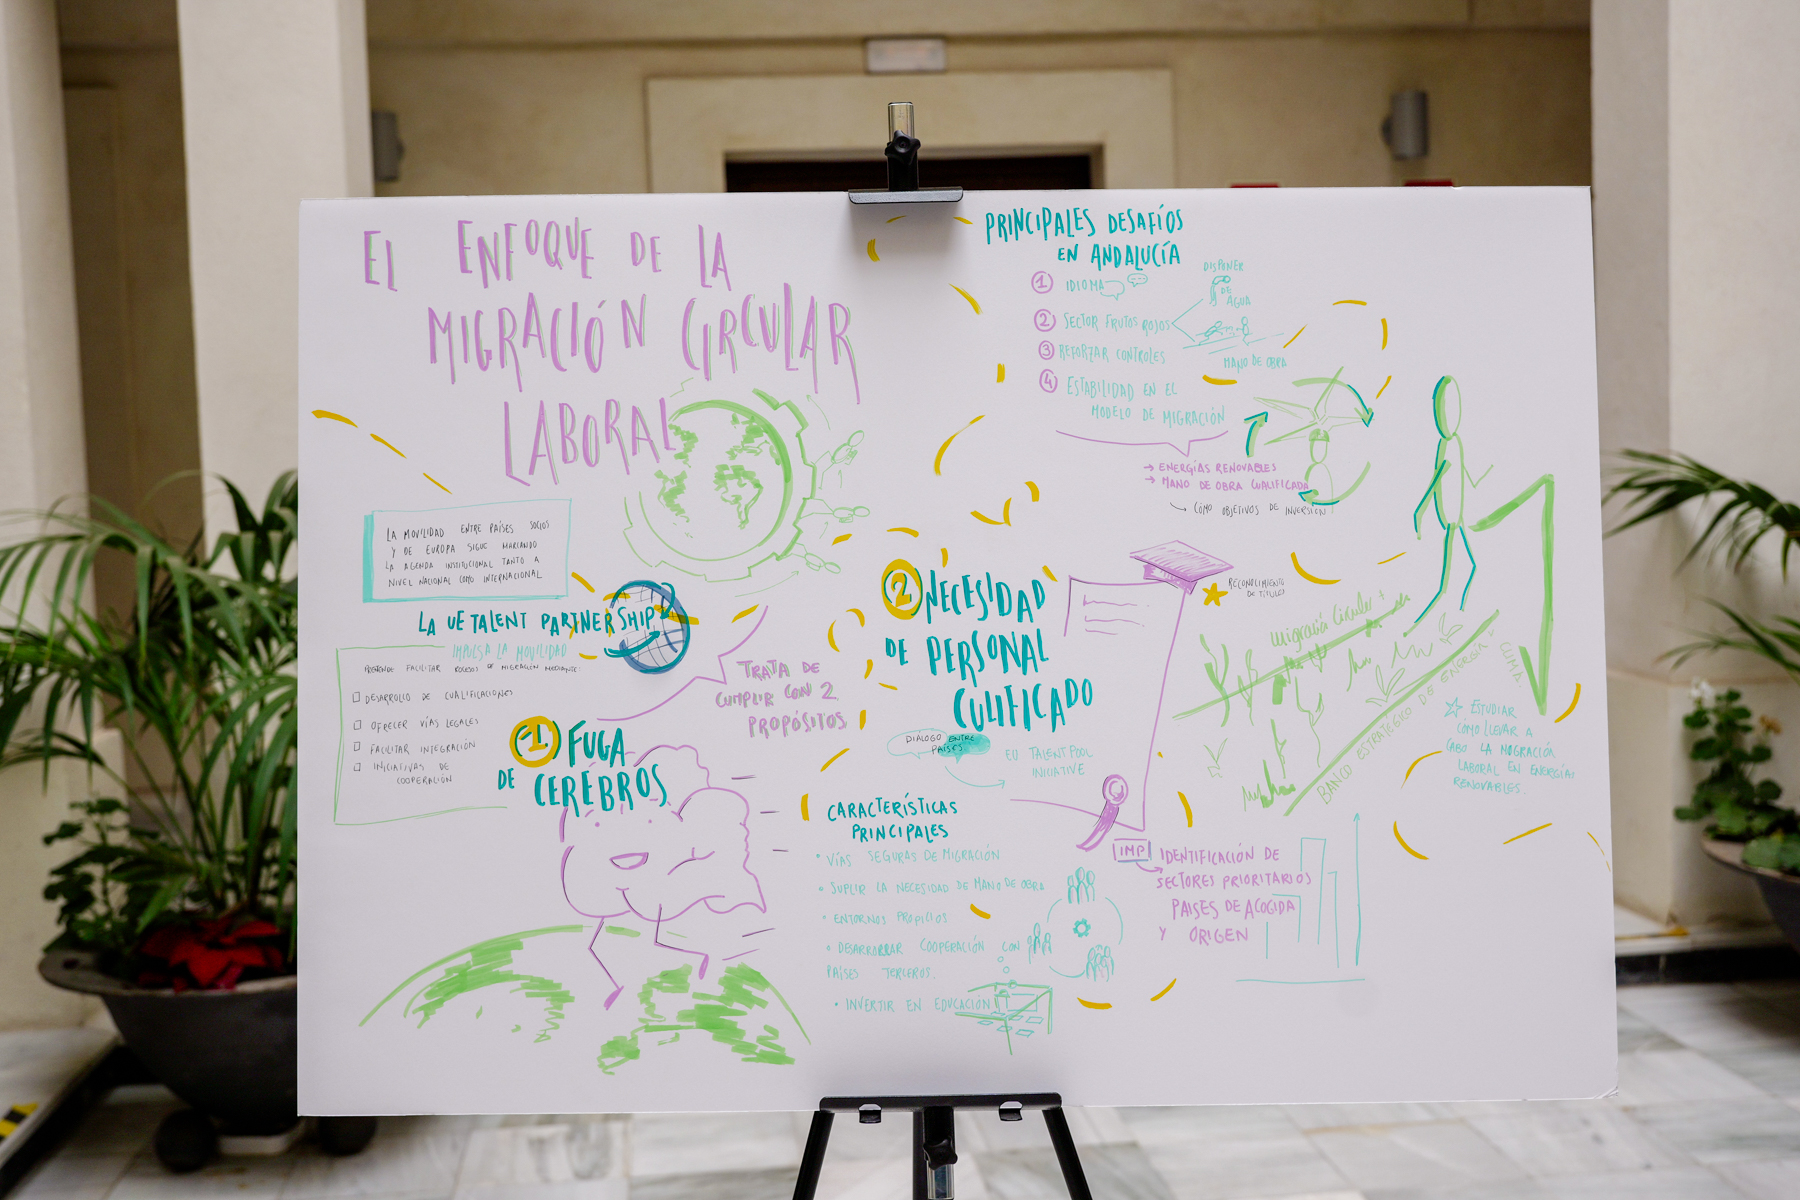 EL ENFOQUE DE LA
MIGRACIÓN CIRCULAR
LABORAL
LA MOVILIDAD ENTRE PAÍSES SOCIOS
Y DE EUROPA SIGUE MARCANDO
LA AGENDA INSTITUCIONAL TANTO A
NIVEL NACIONAL COMO INTERNACIONAL
LA UE TALENT PARTNERSHIP
IMPULSA LA MOVILIDAD
PRETENDE FACILITAR PROCESOS DE MIGRACIÓN MEDIANTE:
DESARROLLO DE CUALIFICACIONES
OFRECER VÍAS LEGALES
FACILITAR INTEGRACIÓN
INICIATIVAS DE
COOPERACIÓN
TRATA DE
CUMPLIR CON 2
PROPÓSITOS
1 FUGA
DE CEREBROS
2 NECESIDAD
DE PERSONAL
CULIFICADO
DIALOGO ENTRE
PAÍSES
EU TALENT POOL
INICIATIVE
CARACTERÍSTICAS
PRINCIPALES
• VÍAS SEGURAS DE MIGRACIÓN
• SUPLIR LA NECESIDAD DE MANO DE OBRA
• ENTORNOS PROPICIOS
• DESARRORRAR COOPERACIÓN CON
PAÍSES TERCEROS.
• INVERTIR EN EDUCACIÓN
PRINCIPALES DESAFÍOS
EN ANDALUCÍA
1 IDIOMA
2 SECTOR FRUTOS ROJOS
DISPONER
DE
AGUA
MANO DE OBRA
3 REFORZAR CONTROLES
4 ESTABILIDAD EN EL
MODELO DE MIGRACIÓN
→ ENERGÍAS RENOVABLES
→ MANO DE OBRA CUALIFICADA
↳ CÓMO OBJETIVOS DE INVERSIÓN
RECONOCIMIENTO
DE TÍTULOS
migración circular +
BANCO ESTRATÉGICO DE ENERGÍA
CLIMA
☆ ESTUDIAR
CÓMO LLEVAR A
CABO LA MIGRACIÓN
LABORAL EN ENERGÍAS
RENOVABLES.
IMP
IDENTIFICACIÓN DE
SECTORES PRIORITARIOS
PAISES DE ACOGIDA
Y ORIGEN